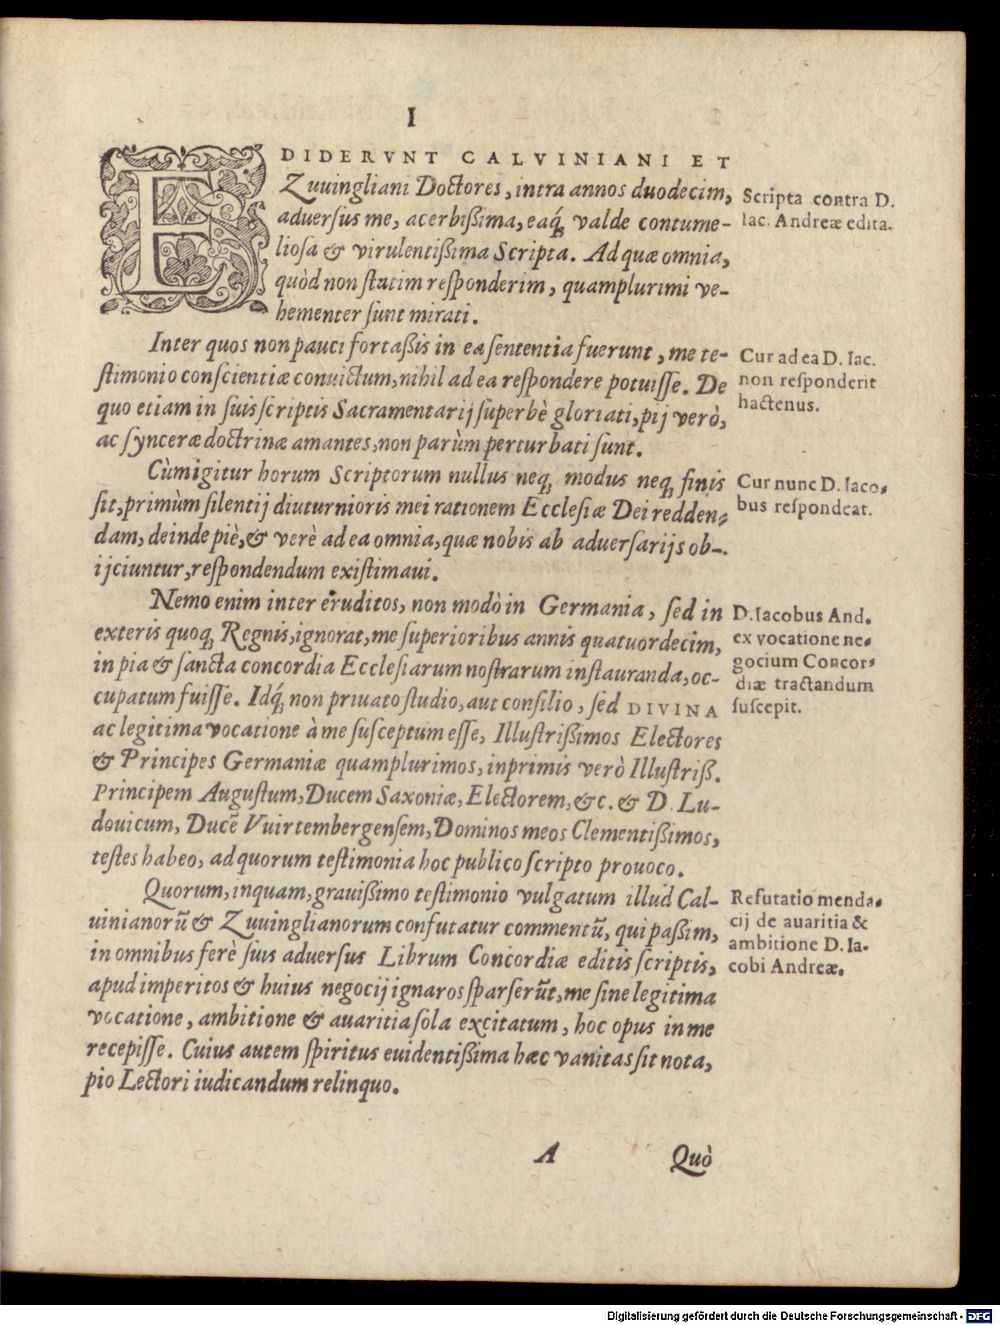 I
EDIDERVNT CALVINIANI ET
Zuuingliani Doctores, intra annos duodecim,
aduersus me, acerbißima, eaq́; valde contume-
liosa & virulentißima Scripta. Ad quæ omnia,
quòd non statim responderim, quamplurimi ve-
hementer sunt mirati.
Scripta contra D.
Iac. Andreæ edita.
Inter quos non pauci fortaßis in ea sententia fuerunt, me te-
stimonio conscientiæ conuictum, nihil ad ea respondere potuisse. De
quo etiam in suis scriptis Sacramentarij superbè gloriati, pij verò,
ac synceræ doctrinæ amantes, non parùm perturbati sunt.
Cur ad ea D. Iac.
non responderit
hactenus.
Cùm igitur horum Scriptorum nullus neq; modus neq; finis
sit, primùm silentij diuturnioris mei rationem Ecclesiæ Dei redden-
dam, deinde piè, & verè ad ea omnia, quæ nobis ab aduersarijs ob-
ijciuntur, respondendum existimaui.
Cur nunc D. Iaco-
bus respondeat.
Nemo enim inter eruditos, non modò in Germania, sed in
exteris quoq; Regnis, ignorat, me superioribus annis quatuordecim,
in pia & sancta concordia Ecclesiarum nostrarum instauranda, oc-
cupatum fuisse. Idq́; non priuato studio, aut consilio, sed DIVINA
ac legitima vocatione à me susceptum esse, Illustrißimos Electores
& Principes Germaniæ quamplurimos, inprimis verò Illustriß.
Principem Augustum, Ducem Saxoniæ, Electorem, &c. & D. Lu-
douicum, Ducẽ Vuirtembergensem, Dominos meos Clementißimos,
testes habeo, ad quorum testimonia hoc publico scripto prouoco.
D. Iacobus And.
ex vocatione ne-
gocium Concor-
diæ tractandum
suscepit.
Quorum, inquam, grauißimo testimonio vulgatum illud Cal-
uinianorũ & Zuuinglianorum confutatur commentũ, qui paßim,
in omnibus ferè suis aduersus Librum Concordiæ editis scriptis,
apud imperitos & huius negocij ignaros sparserũt, me sine legitima
vocatione, ambitione & auaritia sola excitatum, hoc opus in me
recepisse. Cuius autem spiritus euidentißima hæc vanitas sit nota,
pio Lectori iudicandum relinquo.
Refutatio menda-
cij de auaritia &
ambitione D. Ia-
cobi Andreæ.
A
Quò
Digitalisierung gefördert durch die Deutsche Forschungsgemeinschaft - DFG